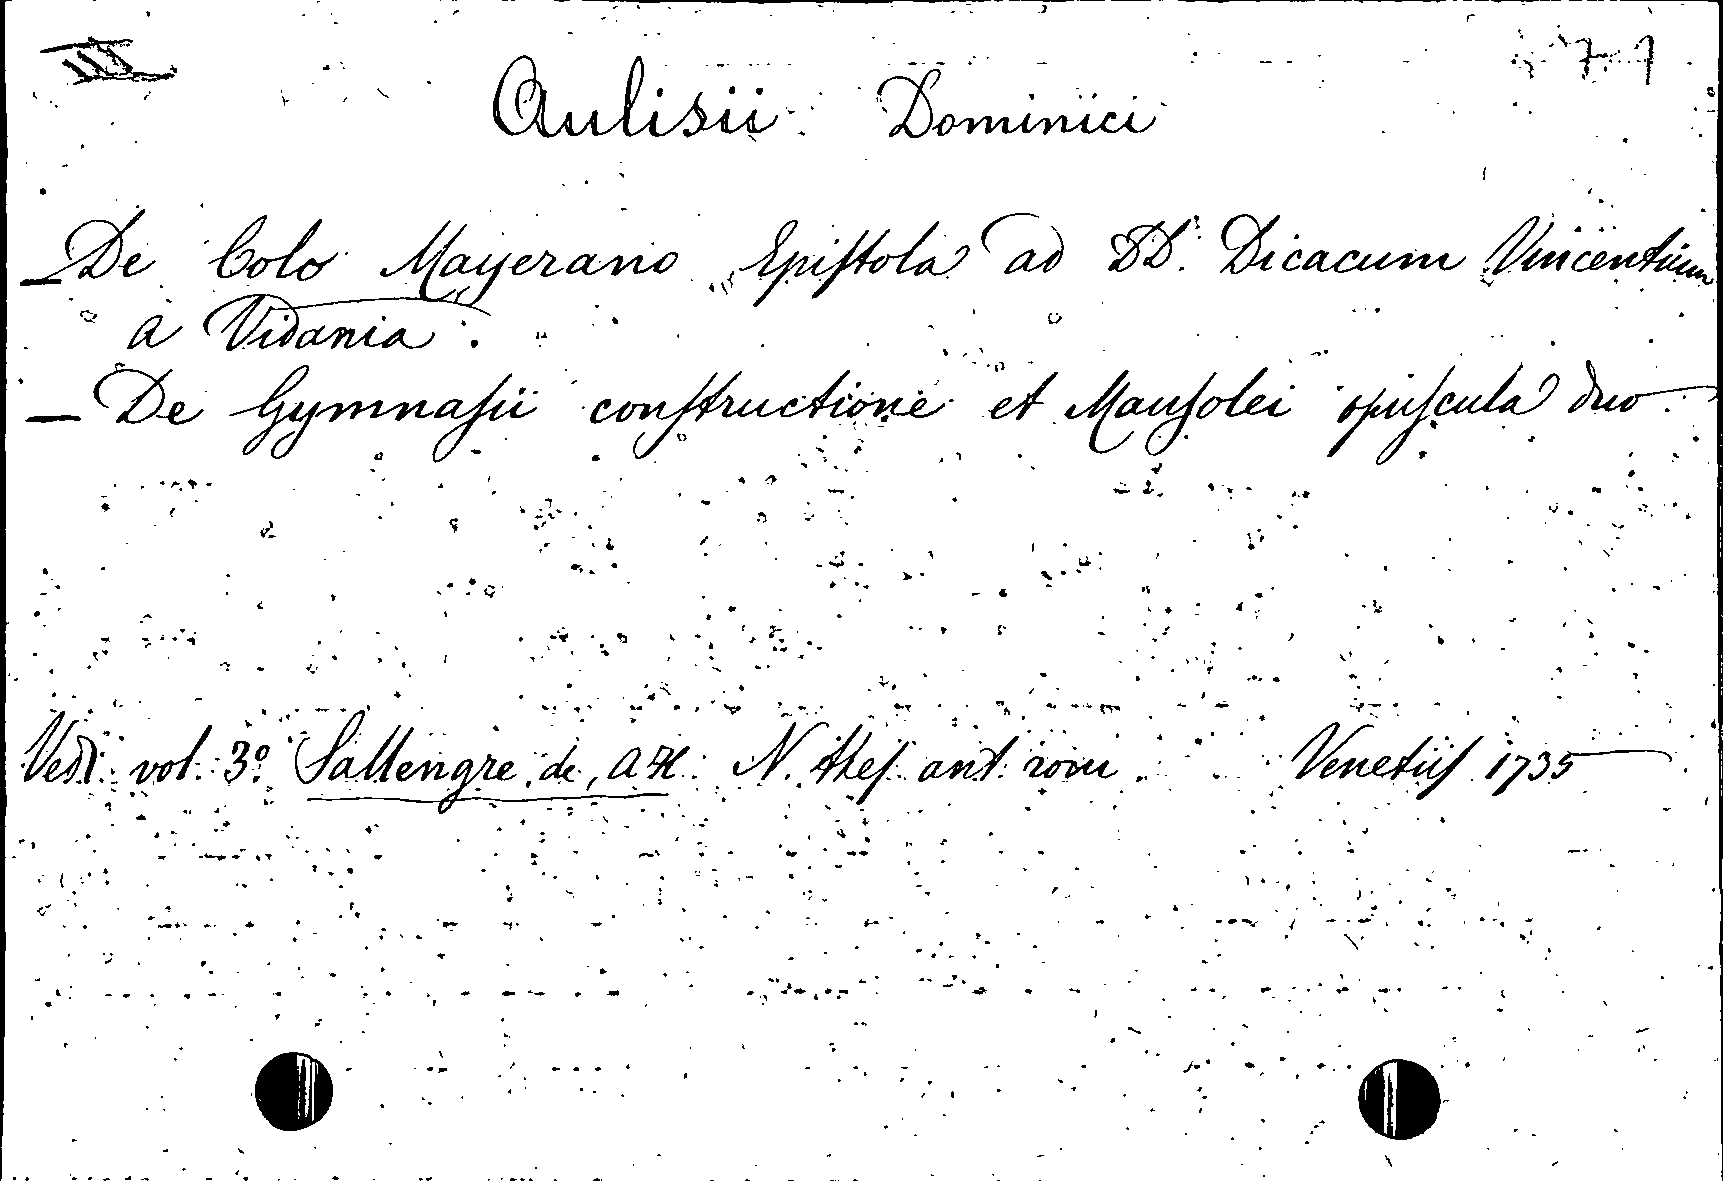 III
Aulisii Dominici
— De Colo Mayerano Epistola ad DD. Dicacum Vincentium
a Vidania.
— De Gymnasii constructione et Mausolei opuscula duo.
Vedi vol. 3º Sallengre de, A H. N. thes ant: rom Venetiis 1735